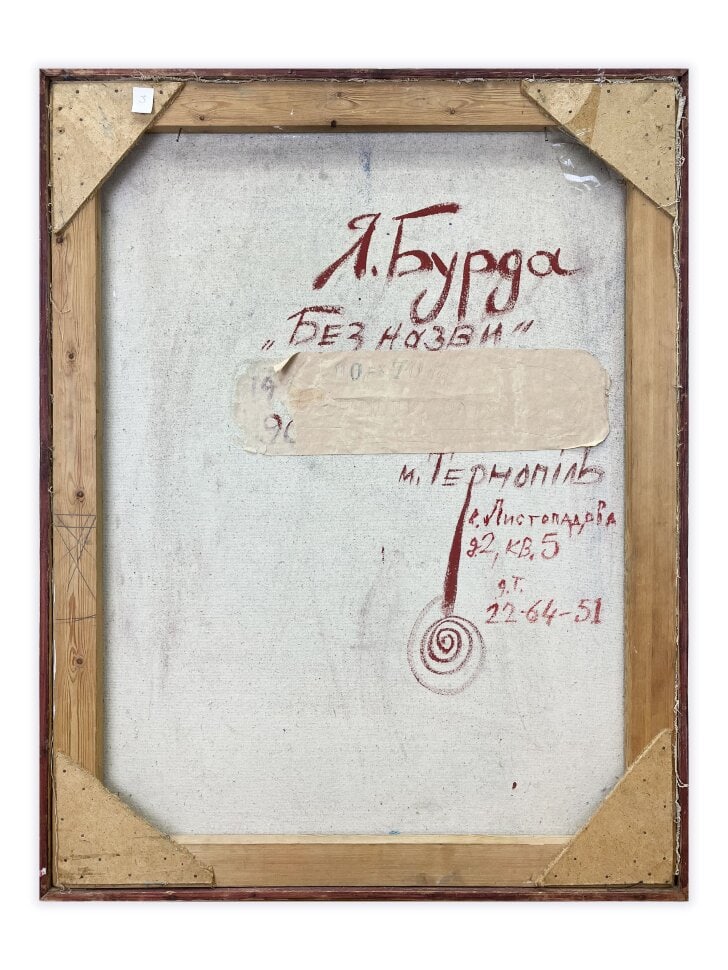 3
Я. Бурда
„Без назви"
м. Тернопіль
в. Листопадова
д2, кв. 5
д.т.
22-64-51